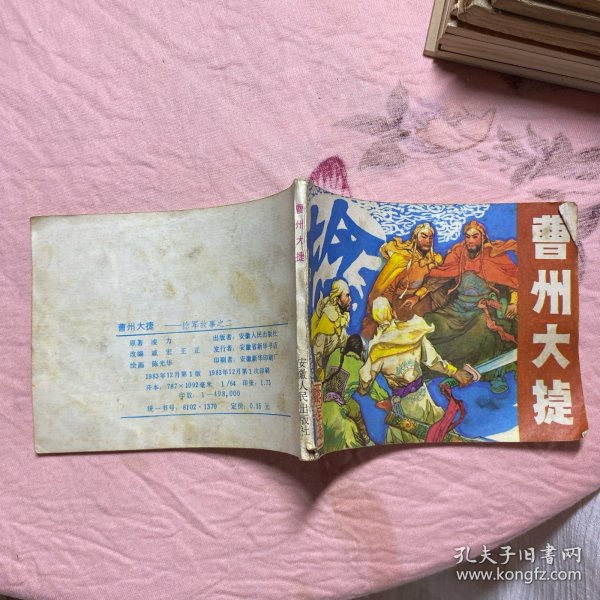 曹州大捷
捻
曹州大捷
安徽人民出版社
曹州大捷——捻军故事之二
原著 凌力 出版者:安徽人民出版社
改编 戚宏 王正 发行者:安徽省新华书店
绘画 陈光华 印刷者:安徽新华印刷厂
1983年12月第1版 1983年12月第1次印刷
开本:787×1092毫米 1/64 印张:1.75
字数:1—498,000
统一书号:8102·1370 定价:0.16元
孔夫子旧书网
www.kongfz.com